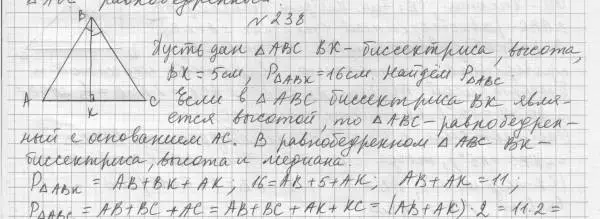 △ABC равнобедренный.
№238
B
Пусть дан △ABC BK - биссектриса, высота,
BK = 5см, P△ABK = 16см. Найдём P△ABC.
A K C
Если в △ABC биссектриса BK явля-
ется высотой, то △ABC - равнобедрен-
ный с основанием AC. В равнобедренном △ABC BK -
биссектриса, высота и медиана.
P△ABK = AB + BK + AK; 16 = AB + 5 + AK; AB + AK = 11;
P△ABC = AB + BC + AC = AB + BC + AK + KC = (AB + AK) · 2 = 11 · 2 =